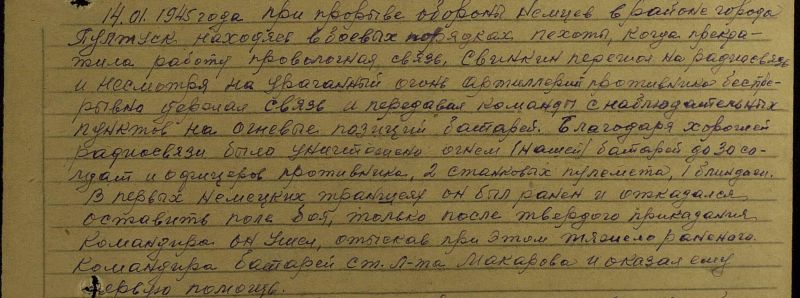 14.01.1945 года при прорыве обороны немцев в районе города
Пултуск находясь в боевых порядках пехоты, когда прекра-
тила работу проволочная связь, Свинкин перешел на радиосвязь
и несмотря на ураганный огонь артиллерии противника беспре-
рывно держал связь и передавал команды с наблюдательных
пунктов на огневые позиций батарей. Благодаря хорошей
радиосвязи было уничтожено огнем (нашей) батарей до 30 со-
лдат и офицеров противника, 2 станковых пулемета, 1 блиндаж.
В первых немецких траншеях он был ранен и отказался
оставить поле боя, только после твердого приказания
командира он ушел, отыскав при этом тяжело раненого
командира батарей ст. л-та Макарова и оказал ему
первую помощь.